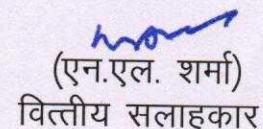 (एन.एल. शर्मा)
वित्तीय सलाहकार